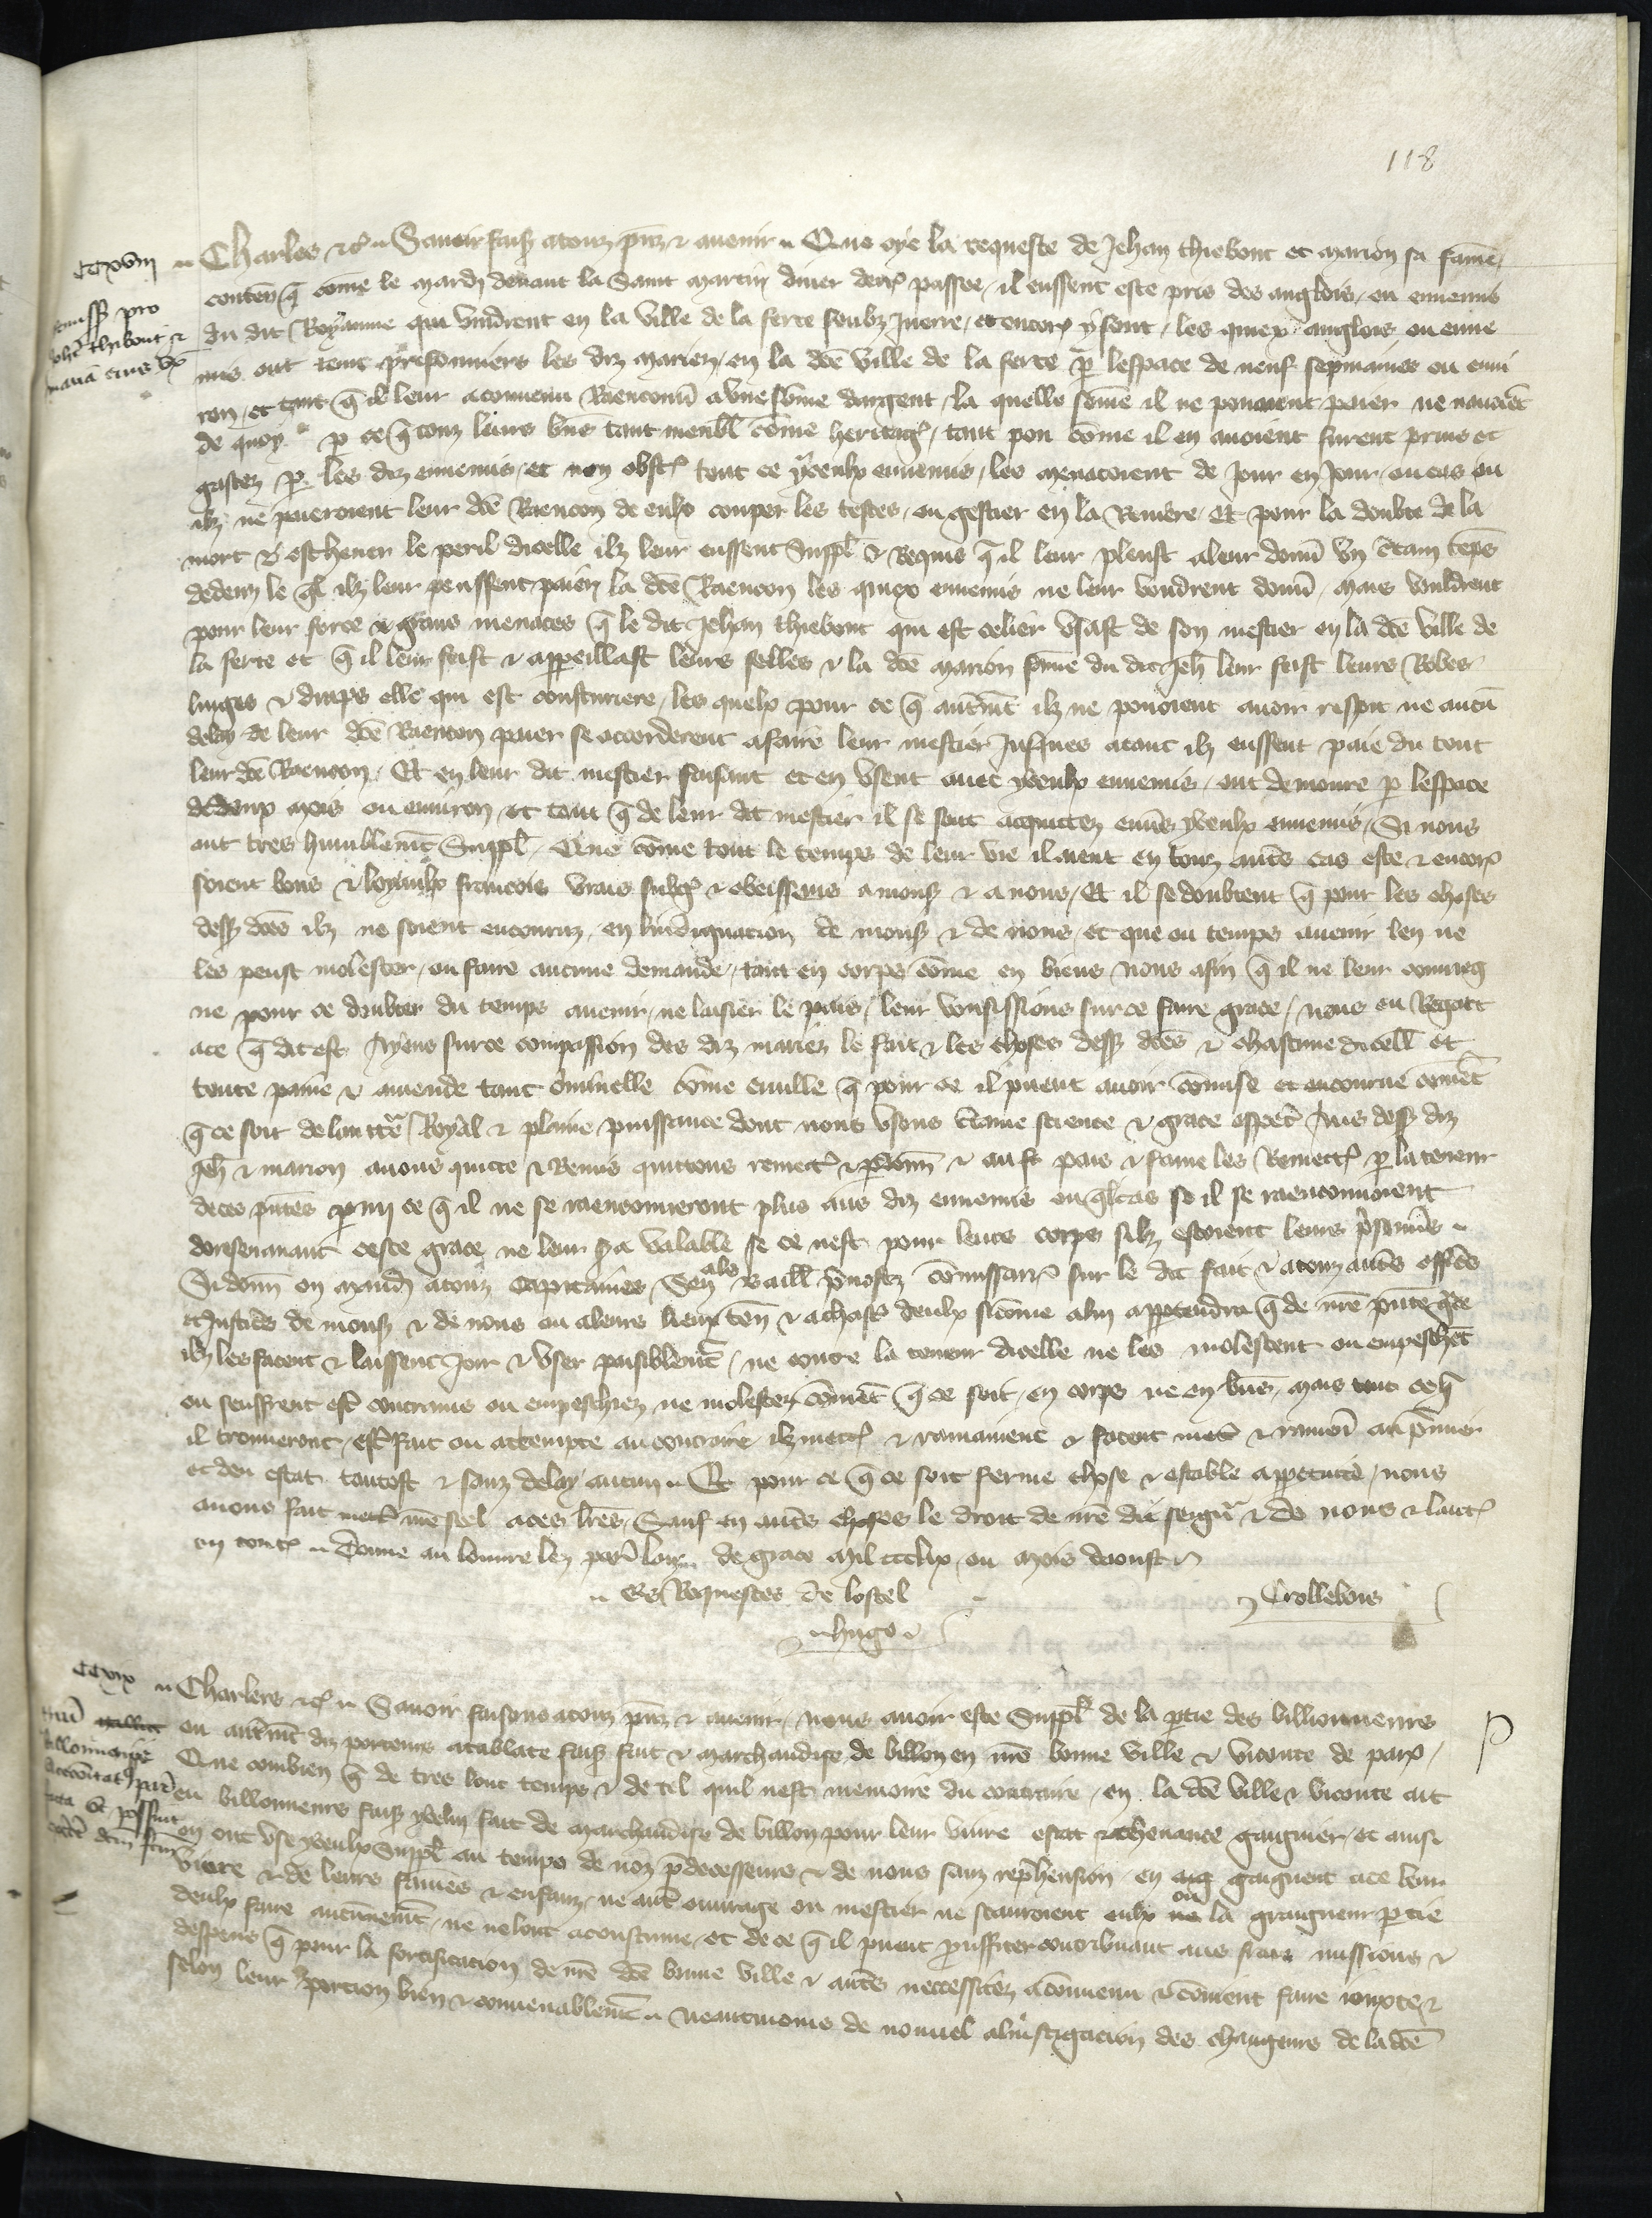 118
CCXVIII
Charles etc. Savoir faisz atouz pnz & avenir Que oye la requeste de Jehan Thiebout et Marion sa fame
conten q come le mardi devant la Saint Martin diver derr passee il eussent este pris des anglois ou ennemis
Remiss pro
Johe Thibout &
du dit Royaume qui vindrent en la ville de la ferte soubz Juerre et encor y sont les quiex anglois ou enne
mis ont tenu prisonniers les diz mariez en la dce ville de la ferte p lespace de neuf sepmaines ou envi
ron et tant q il leur a convenu Raenconn a une some dargent la quelle some il ne povoient paier ne navoiet
de quoy p ce q touz leurs bns tant meubl come heritag tant pou come il en avoient furent prins et
gastez p les diz ennemis et non obst tout ce yceulx ennemis les menacoient de jour en jour ou cas ou
ilz ne paieroient leur dce Raencon de eulx couper les testes ou gester en la Riviere Et pour la doubte de la
mort & eschever le peril dicelle ilz leur eussent suppl & Requis q il leur pleust a leur donn un ctain teps
dedenz le ql ilz leur peussent paier la dce Raencon les quiex ennemis ne leur voudrent donn mais vouldrent
pour leur force & grans menaces q le dit Jehan Thiebout qui est celier usast de son mestier en la dce ville de
la ferte et q il leur feist & appeillast leurs selles & la dce Marion fame du dit Jeh leur feist leurs Robes
linges & draps elle qui est cousturiere les quelx pour ce q autremt ilz ne povoient avoir respit ne aucu
delay de leur dce Raencon paier se accorderent a faire leur mestier Jusques a tant ilz eussent paie du tout
leur dce Raencon Et en leur dit mestier faisant et en usent avec yceulx ennemis ont demoure p lespace
de deux mois ou environ et tant q de leur dit mestier il se sont acquittez envs yceulx ennemis Si nous
ont tres humblemt suppl Que come tout le temps de leur vie il aient en touz auts cas este & encor
soient bons & loyaulx francois vrais subg & obeissens a mons & a nous Et il se doubtent q pour les choses
dess dces ilz ne soient encouruz en lindignacion de mons & de nous et que ou temps avenir len ne
les peust molester ou faire aucune demande tant en corps come en biens nous afin q il ne leur conviegn
ne pour ce doubter du temps avenir ne laissier le pais leur vousissions sur ce faire grace nous eu Regart
a ce q dit est Ayens sur ce compassion des diz mariez le fait & les choses dess dces & chascune dicell et
toute paine & amende tant criminelle come civille q pour ce il puent avoir comise et encourue coment
q ce soit de lauctte Royal & plaine puissance dont nous usons ctaine science & grace especl Aus dess diz
Jeh & Marion avons quicte & Remis quittons remett & pdonn & au st pais & fame les Remett p la teneur
de ces pntes pmi ce q il ne se raenconneront plus aus diz ennemis ou ql cas se il se raenconnoient
doresenavant ceste grace ne leur sa valable se ce nest pour leurs corps silz estoient leurs prisonns
Si donn en mand atouz Capitaines Sen als baill prevostz comissairs sur le dit fait & a touz auts offices
& Justices de mons & de nous ou a leurs lieux ten & a chasc deulx si come a lui apptendra q de nre pnte gce
ilz les facent & laissent Jouir & user paisiblemt ne contre la teneur dicelle ne les molestent ou empeschet
ou seuffrent est contrains ou empeschiez ne molestez coment q ce soit en corps ne en bns mais tout ce q
il trouveront est fait ou attempte au contraire ilz mett & ramainent & facent mett & ramen au pmier
et deu estat tantost & sanz delay aucun Et pour ce q ce soit ferme chose & estable appetuite nous
avons fait mett nre seel a ces lres Sauf en auts choses le droit de nre dit seigr & de nous & lautr
en tout Donne au Louvre lez Paris lan de grace Mil CCCLIX ou mois daoust
Es Requestes de lostel
Hugo
Trollebois
CCXIX
Charles etc. Savoir faisons atouz pnz & avenir nous avoir este suppl de la ptie des billonneurs
ou autremt diz porteurs a tablate faisz fait & marchandise de billon en nre bonne ville & viconte de Paris
Que combien q de tres lonc temps & de tel quil nest memoire du contraire en la dce ville & viconte ait
eu billonneurs faisz yceluy fait de marchandise de billon pour leur vivre estat & chevance gaignier et ainsi
en ont use yceulx suppl au temps de noz pdecesseurs & de nous sanz reprehension en gaignent a ce leur
vivre & de leurs fames & enfanz ne aut ouvrage ou mestier ne scauroient eulx ou la greigneur ptie
deulx faire aucunemt ne ne lont acoustume et de ce q il puent prouffiter contribuant aus fraiz missions &
despens q pour la fortificacion de nre dce bonne ville & auts neccessitez a convenu & convient faire
selon leur porcion bien & convenablemt neantmoins de nouvel a linstigacion des changeurs de la dce